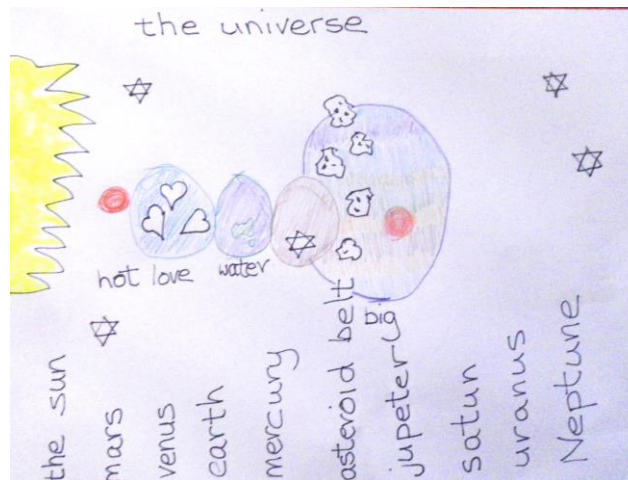 the universe
hot
love
water
big
the sun
mars
venus
earth
mercury
asteroid belt
jupetery
satun
uranus
Neptune